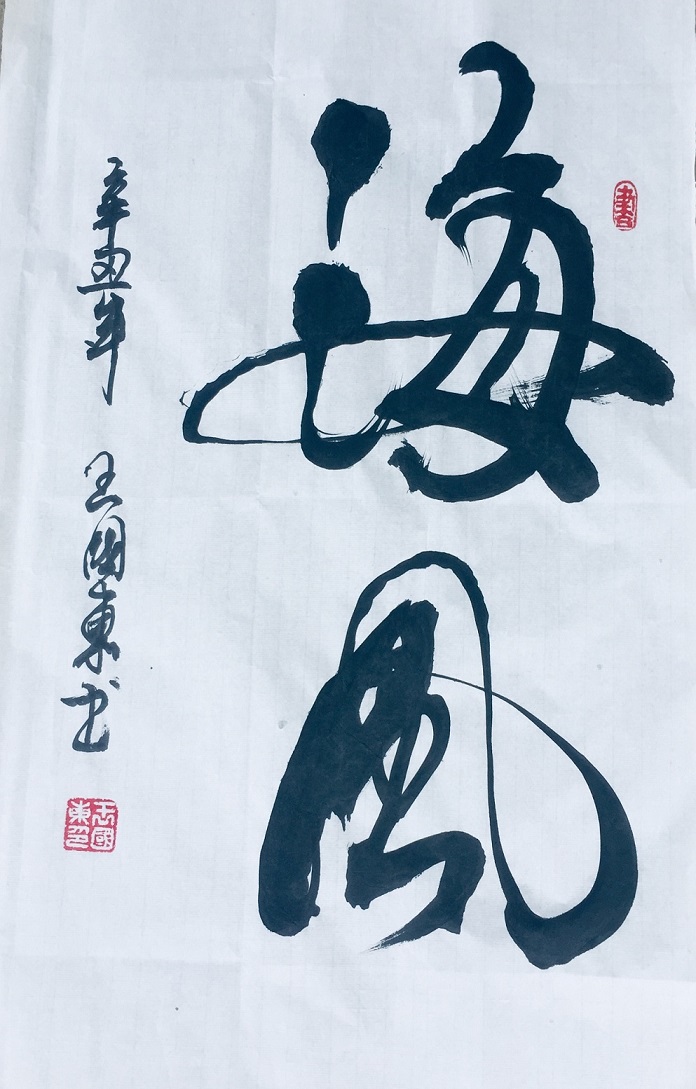 書
海風
辛丑年 王國東书
王國東印